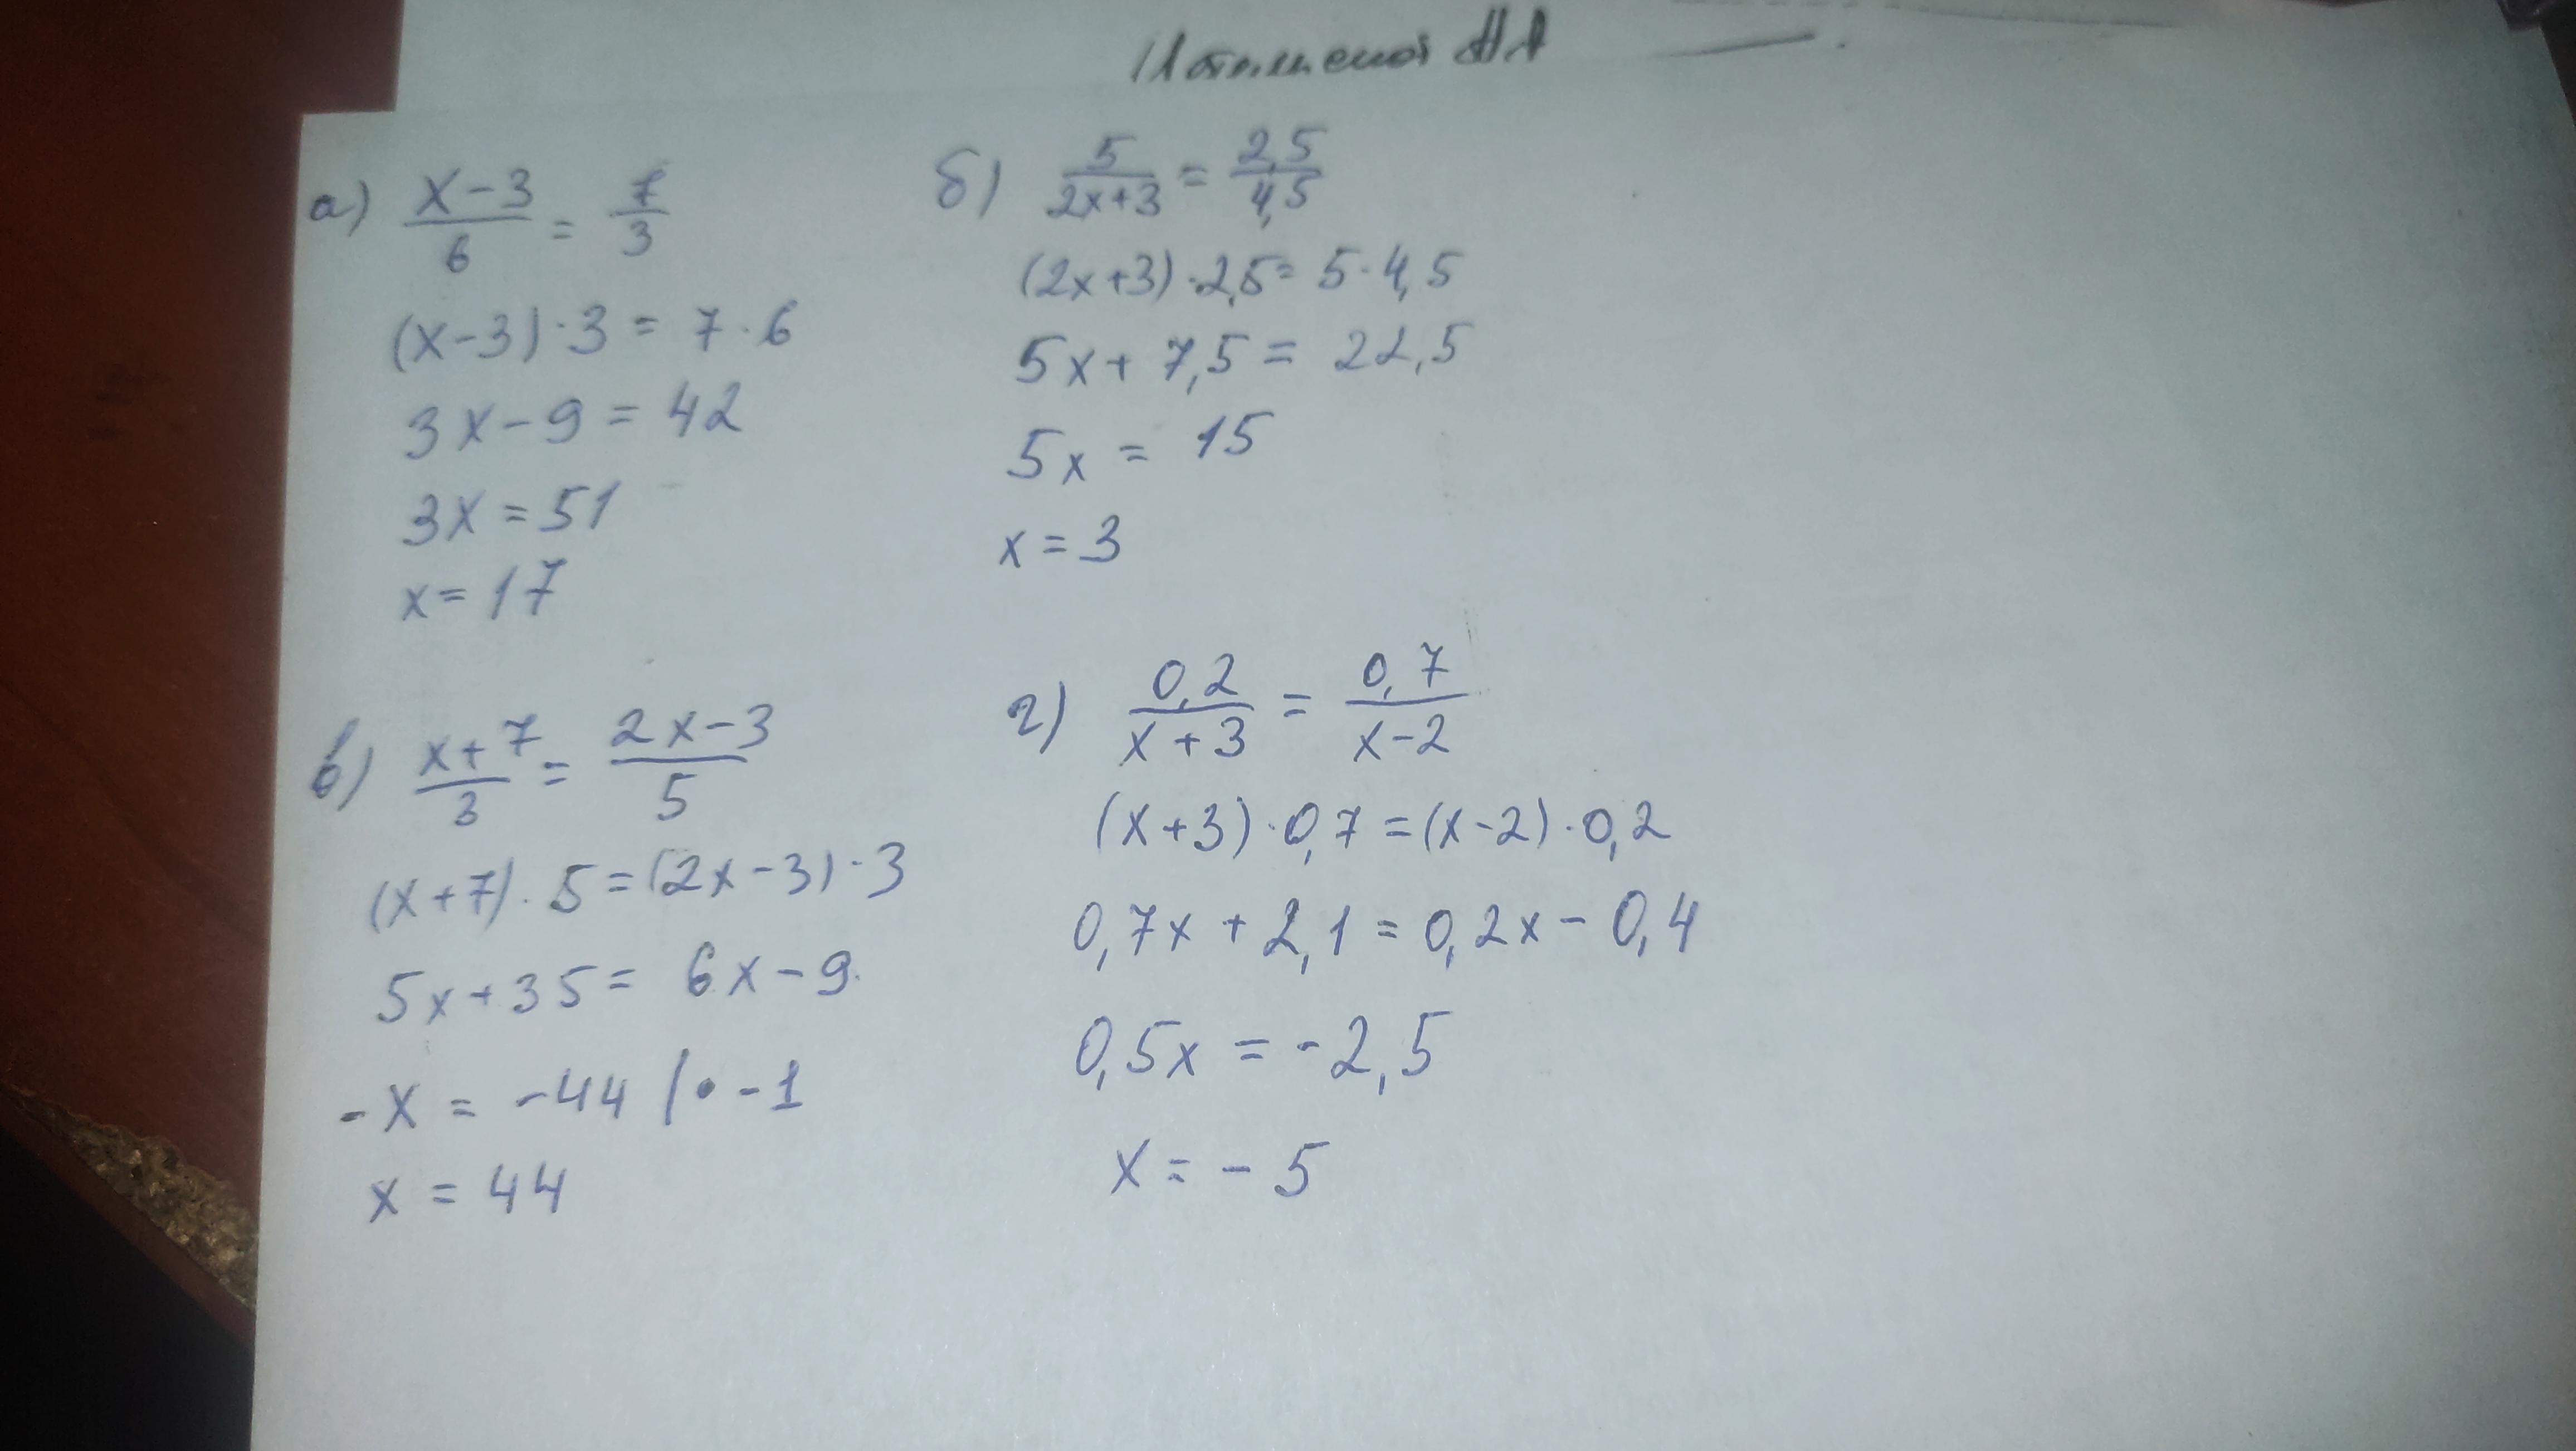 а) (x-3)/6 = 7/3
(x-3)·3 = 7·6
3x-9 = 42
3x = 51
x = 17
б) 5/(2x+3) = 2,5/4,5
(2x+3)·2,5 = 5·4,5
5x + 7,5 = 22,5
5x = 15
x = 3
в) (x+7)/3 = (2x-3)/5
(x+7)·5 = (2x-3)·3
5x+35 = 6x-9
-x = -44 |· -1
x = 44
г) 0,2/(x+3) = 0,7/(x-2)
(x+3)·0,7 = (x-2)·0,2
0,7x + 2,1 = 0,2x - 0,4
0,5x = -2,5
x = -5